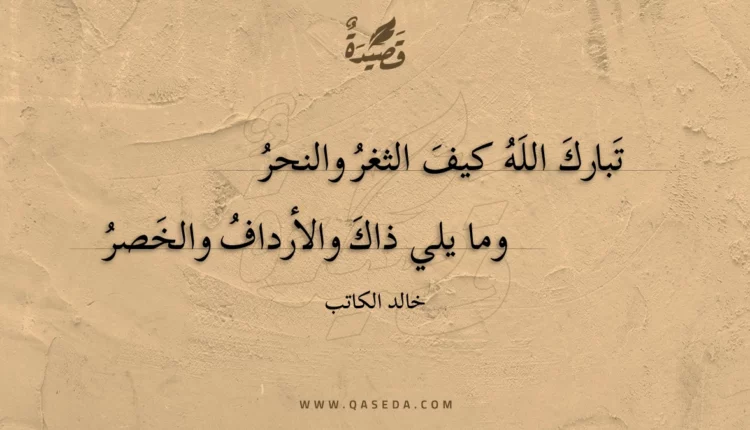 قَصِيدَةٌ
تَباركَ اللَهُ كيفَ الثغرُ والنحرُ
وما يلي ذاكَ والأردافُ والخَصرُ
خالد الكاتب
WWW.QASEDA.COM